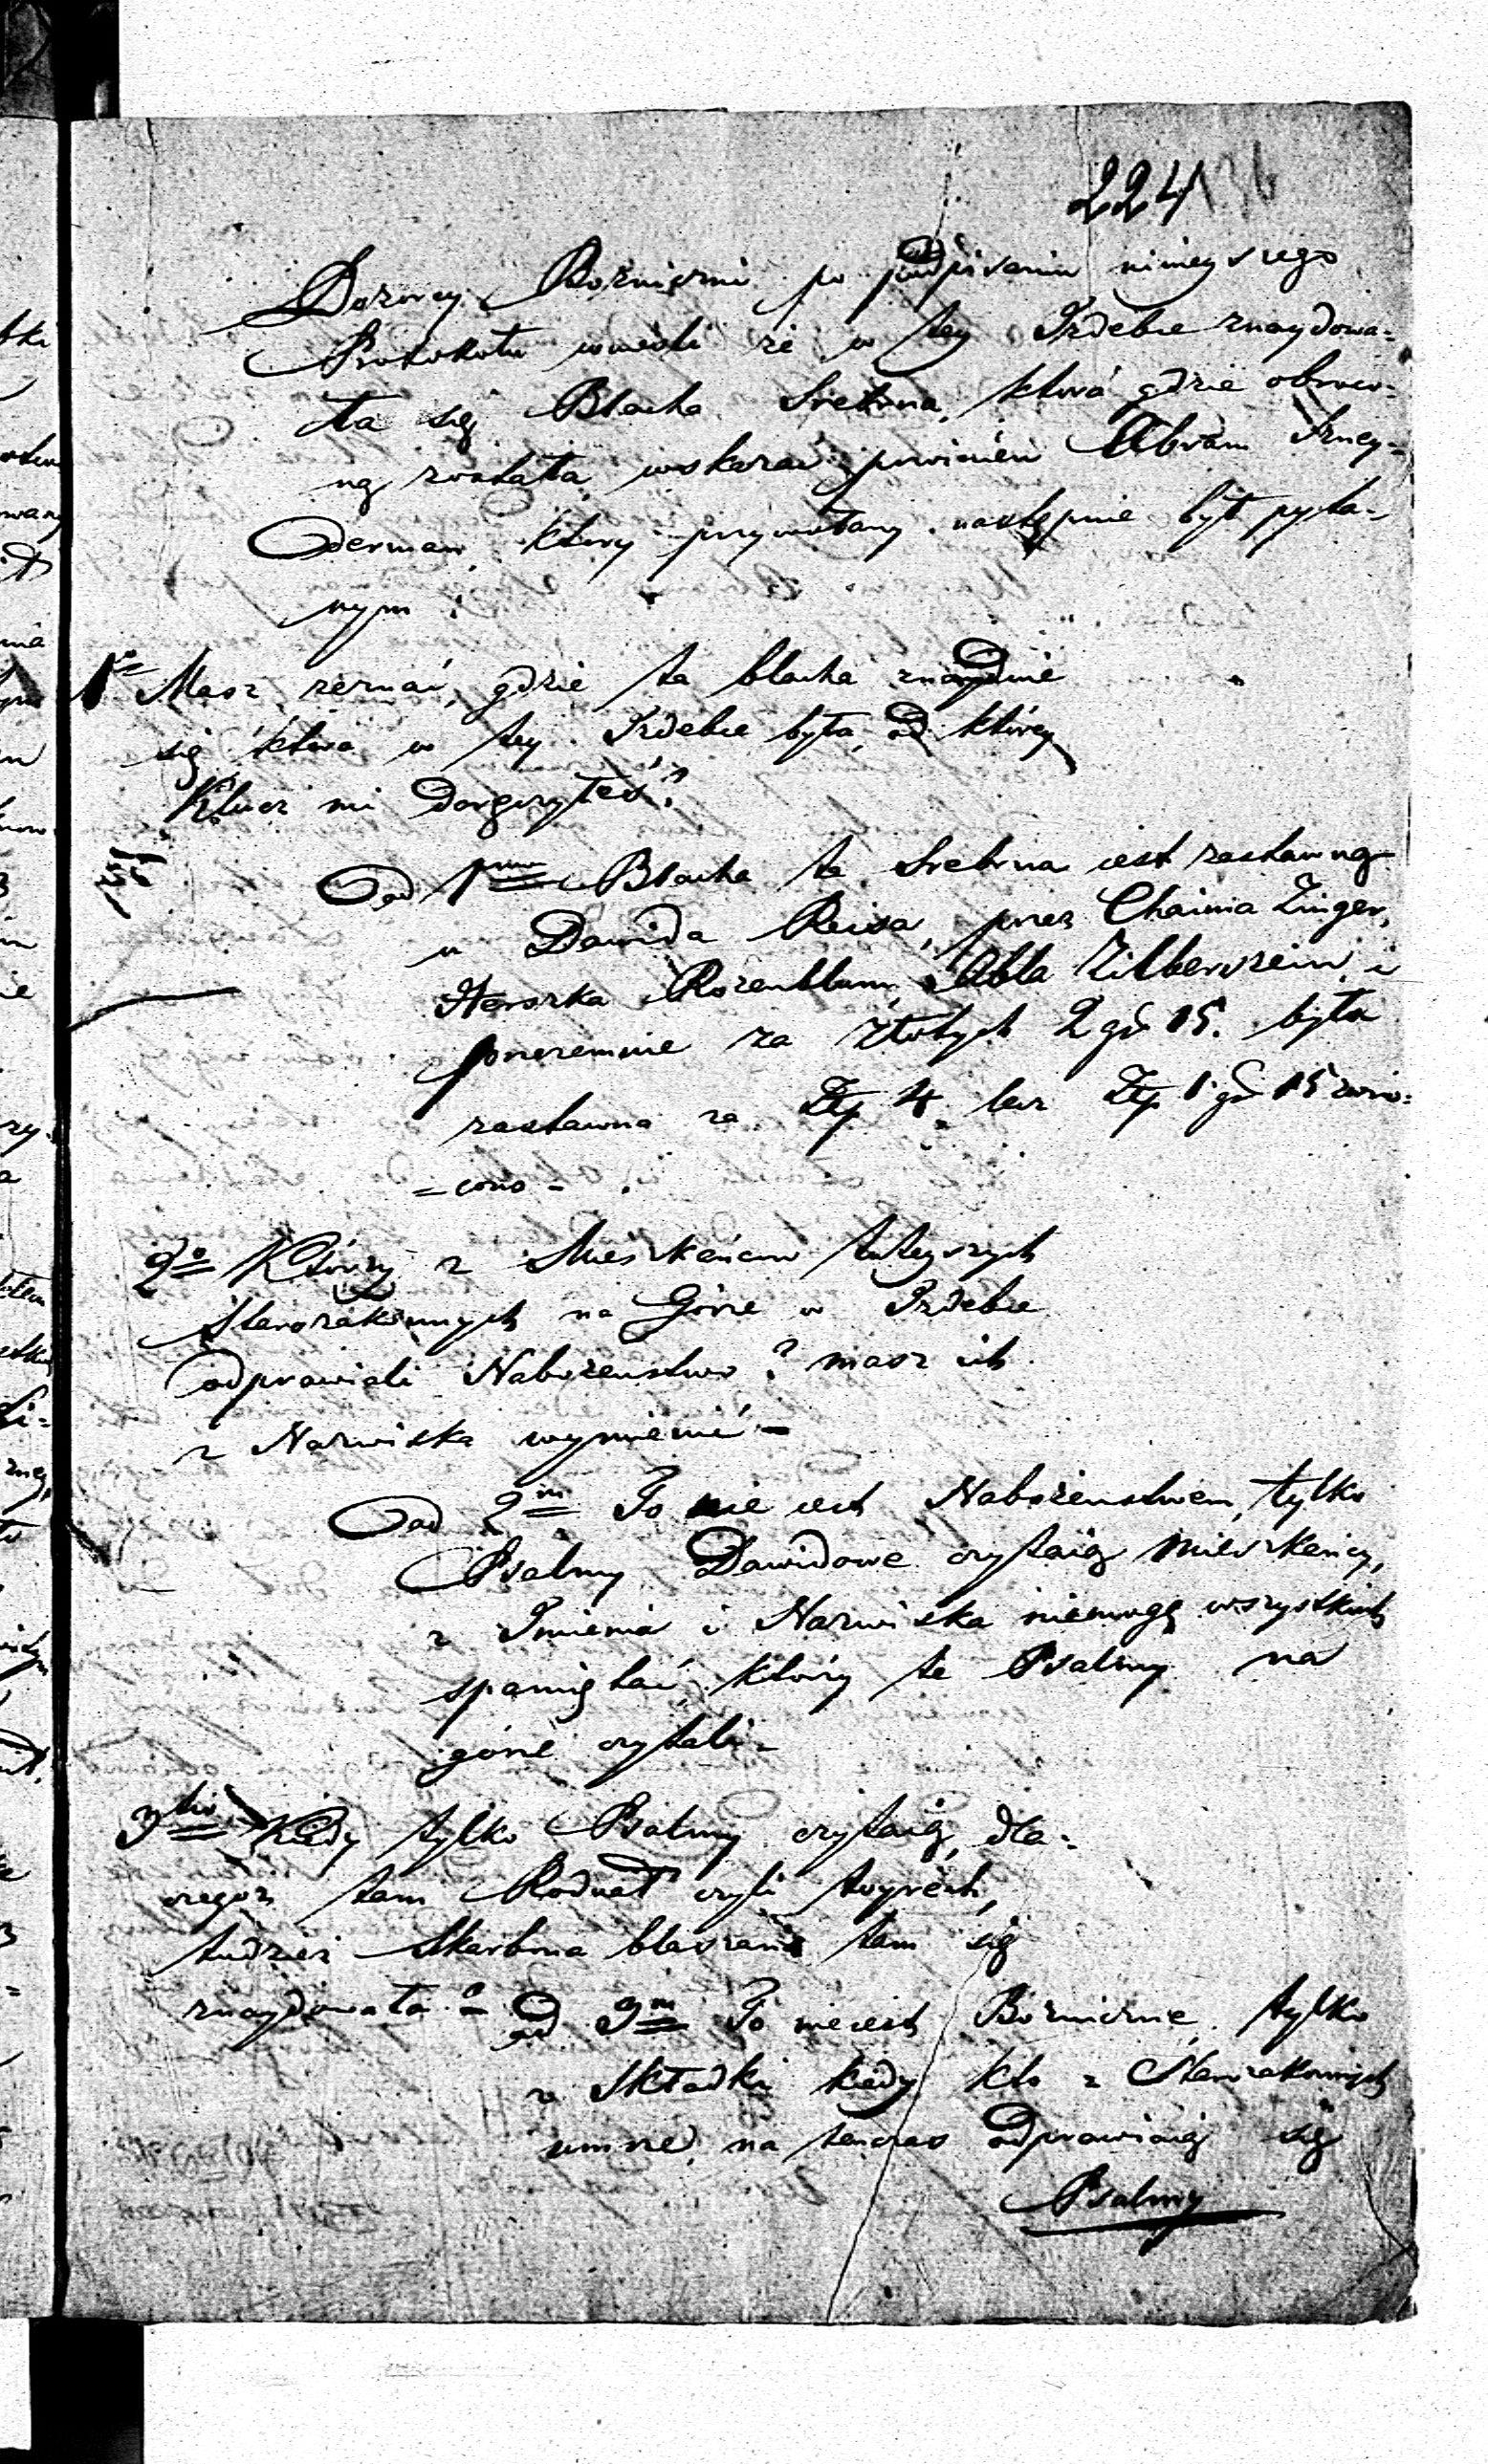 224 136
Dozorcy Bożniczni po podpisaniu ninieyszego
Protokołu wnieśli że w tey Izdebce znaydowa=
ła się Blacha Srebrna, którá gdzie obróco=
ną została, wskazać powinien Abram
który przywołany następnie był pyta=
nym :
1o Masz zeznać, gdzie ta blacha znayduie
się która w tey Izdebce była, od którey
Klucz mi doręczyłeś?
Ad 1mum Blacha ta Srebrna iest zastawną
u Dawida Reisa, przez Chaima Zinger,
Herszka Rozenblum, Abla Zilberszein, i
przezemnie za złotych 2 gr 15. była
zastawna za Złp 4. lecz Złp 1 gr 15 zwró=
=cono -
2o Którzy z Mieszkańcow tuteyszych
Starozakonnych na Górze w Izdebce
odprawiali Nabożenstwo? masz ich
z Nazwiska wymienić -
Ad 2m To nie iest Nabożenstwem, tylko
Psalmy Dawidowe czytaią Mieszkańcy,
z Imienia i Nazwiska niemogę wszystkich
spamiętać, którzy te Psalmy na
górze czytali -
3tio Kiedy tylko Psalmy czytaią, dla=
czegoż tam Roduał czyli
tudzież Skarbona blaszana tam się
znaydowała? -
Ad 3m To nieiest Bożniczne, tylko
z Składki kiedy kto z Starozakonnych
umrze, na tenczas odprawiaią się
Psalmy